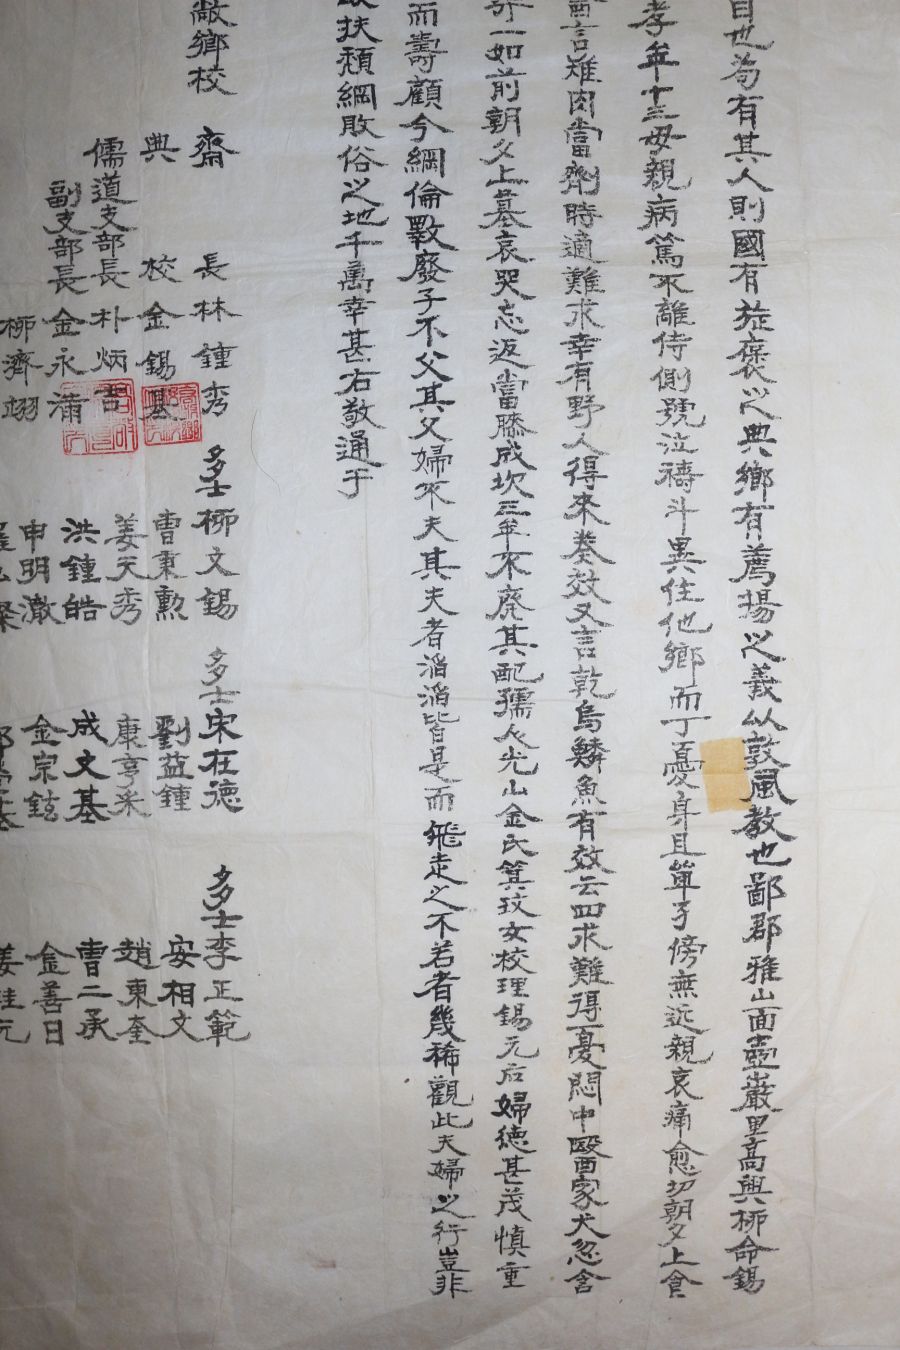 目也為有其人則國有旌褒之典鄉有薦揚之義以敦風教也鄙郡雅山面壺巖里高興柳命錫
孝年十三母親病篤不離侍側號泣禱斗異住他鄉而丁憂身且單孑傍無近親哀痛愈切朝夕上食
言雉肉當劑時適難求幸有野人得來奏效又言乾烏鱗魚有效云四求難得憂悶中醫家犬忽含
一如前朝夕上墓哀哭忘返當膝成坎三年不廢其配孺人光山金氏箕玟女校理錫元后婦德甚茂慎重
而壽顧今綱倫斁廢子不父其父婦不夫其夫者滔滔皆是而飛走之不若者幾稀觀此夫婦之行豈非
扶頹綱敗俗之地千萬幸甚右敬通于
敝鄉校 齋 長 林鍾秀 多士 柳文錫 多士 宋在德 多士 李正範
典 校 金錫基 曹秉勲 劉益鍾 安相文
儒道支部長 朴炳吉 姜天秀 康亨釆 趙東奎
副支部長 金永蒲 洪鍾皓 成文基 曹二承
柳濟翊 申明澈 金宗鉉 金善日